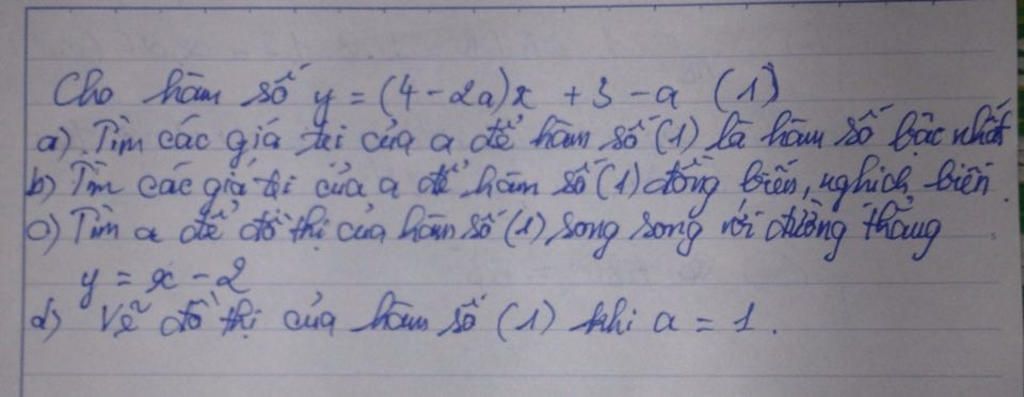 Cho hàm số y = (4 - 2a)x + 3 - a (1)
a). Tìm các giá trị của a để hàm số (1) là hàm số bậc nhất
b) Tìm các giá trị của a để hàm số (1) đồng biến, nghịch biến.
c) Tìm a để đồ thị của hàm số (1) song song với đường thẳng
y = x - 2
d) Vẽ đồ thị của hàm số (1) khi a = 1.